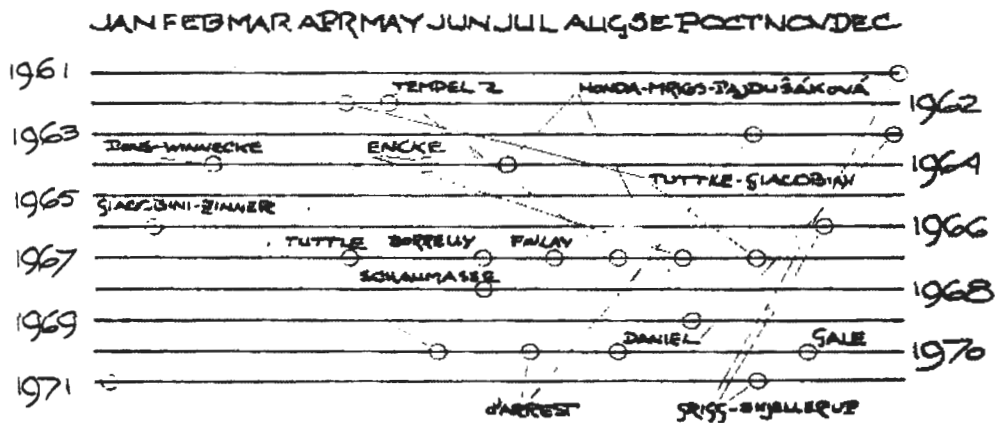 JAN FEB MAR APR MAY JUN JUL AUG SEP OCT NOV DEC
1961
TEMPEL 2 HONDA-MRKOS-PAJDUŠÁKOVÁ 1962
1963
PONS-WINNECKE ENCKE 1964
TUTTLE-GIACOBINI
1965
GIACOBINI-ZINNER 1966
1967 TUTTLE BORRELLY FINLAY
SCHAUMASSE 1968
1969
DANIEL GALE 1970
1971
d'ARREST GRIGG-SKJELLERUP